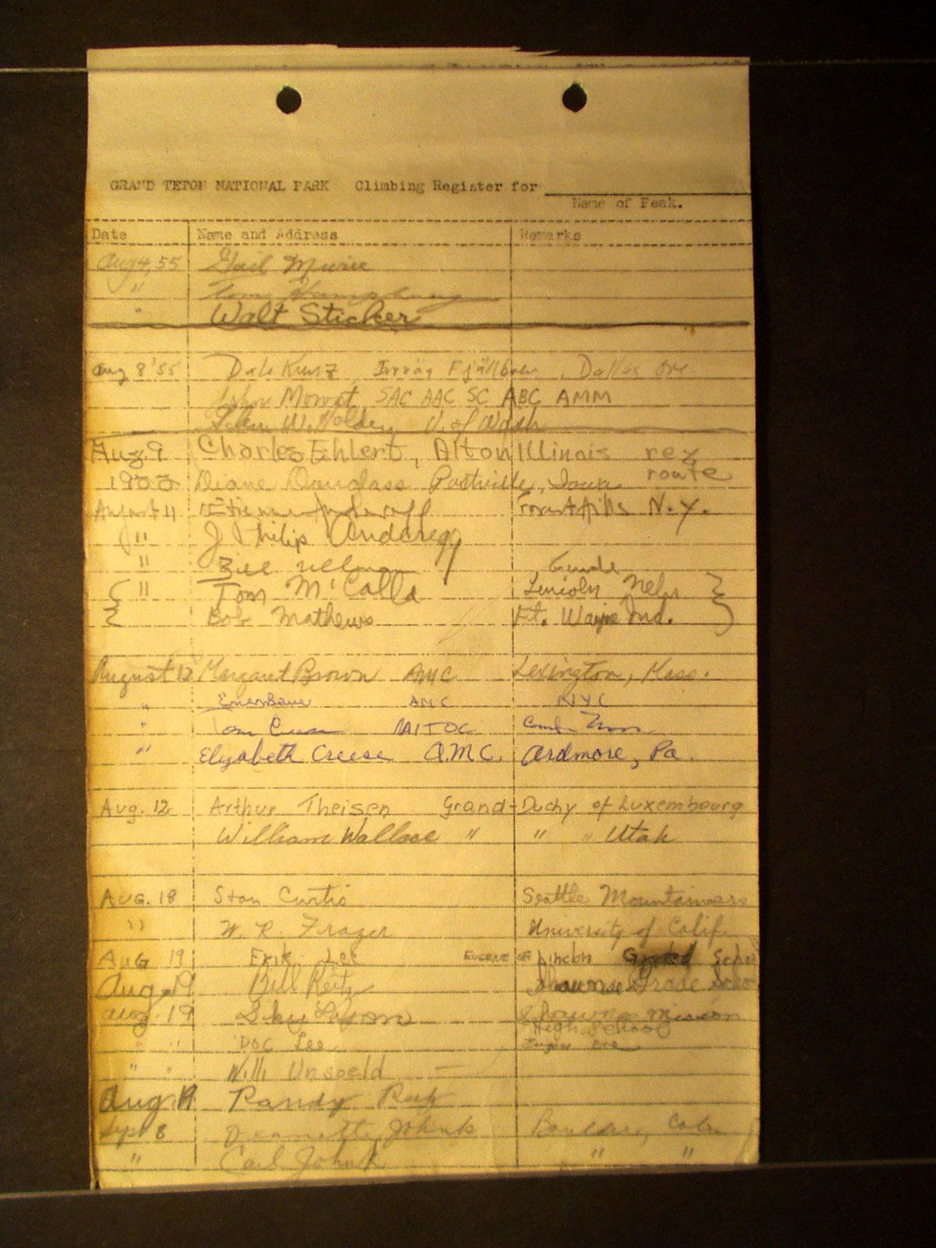 GRAND TETON NATIONAL PARK Climbing Register for
Name of Peak.
Date Name and Address Remarks
Aug 4, 55 Gail Murie
"
" Walt Sticker
Aug 8 '55 Dale Kunz Dalles Ore.
John Mowat SAC AAC SC ABC AMM
W. Holden U. of Wash
Aug. 9 Charles Ehlert, Alton Illinois reg
route
Diane Douglass Postville, Iowa
August 11 N.Y.
" J Philip Anderegg
" Guide
" Tom McCalla Lincoln Nebr
Bob Mathews Ft. Wayne Ind.
August 12 Margaret Brown AMC Lexington, Mass.
" AMC NYC
" MITOC
" Elizabeth Creese A.M.C. Ardmore, Pa.
Aug. 12 Arthur Theisen Grand-Duchy of Luxembourg
William Wallace " " " Utah
Aug. 18 Stan Curtis Seattle Mountaineers
" W. R. Frazer University of Calif.
Aug 19 Erik Lee EUGENE Lincoln School
Aug 19 Bill Reitz Grade
Aug 19 Lyson Mission
High School
" " DOC Lee
" " Willi Unsoeld
Aug 19 Randy
Sept 8 Jeannette Johnk Boulder, Colo.
" Carl Johnk " "